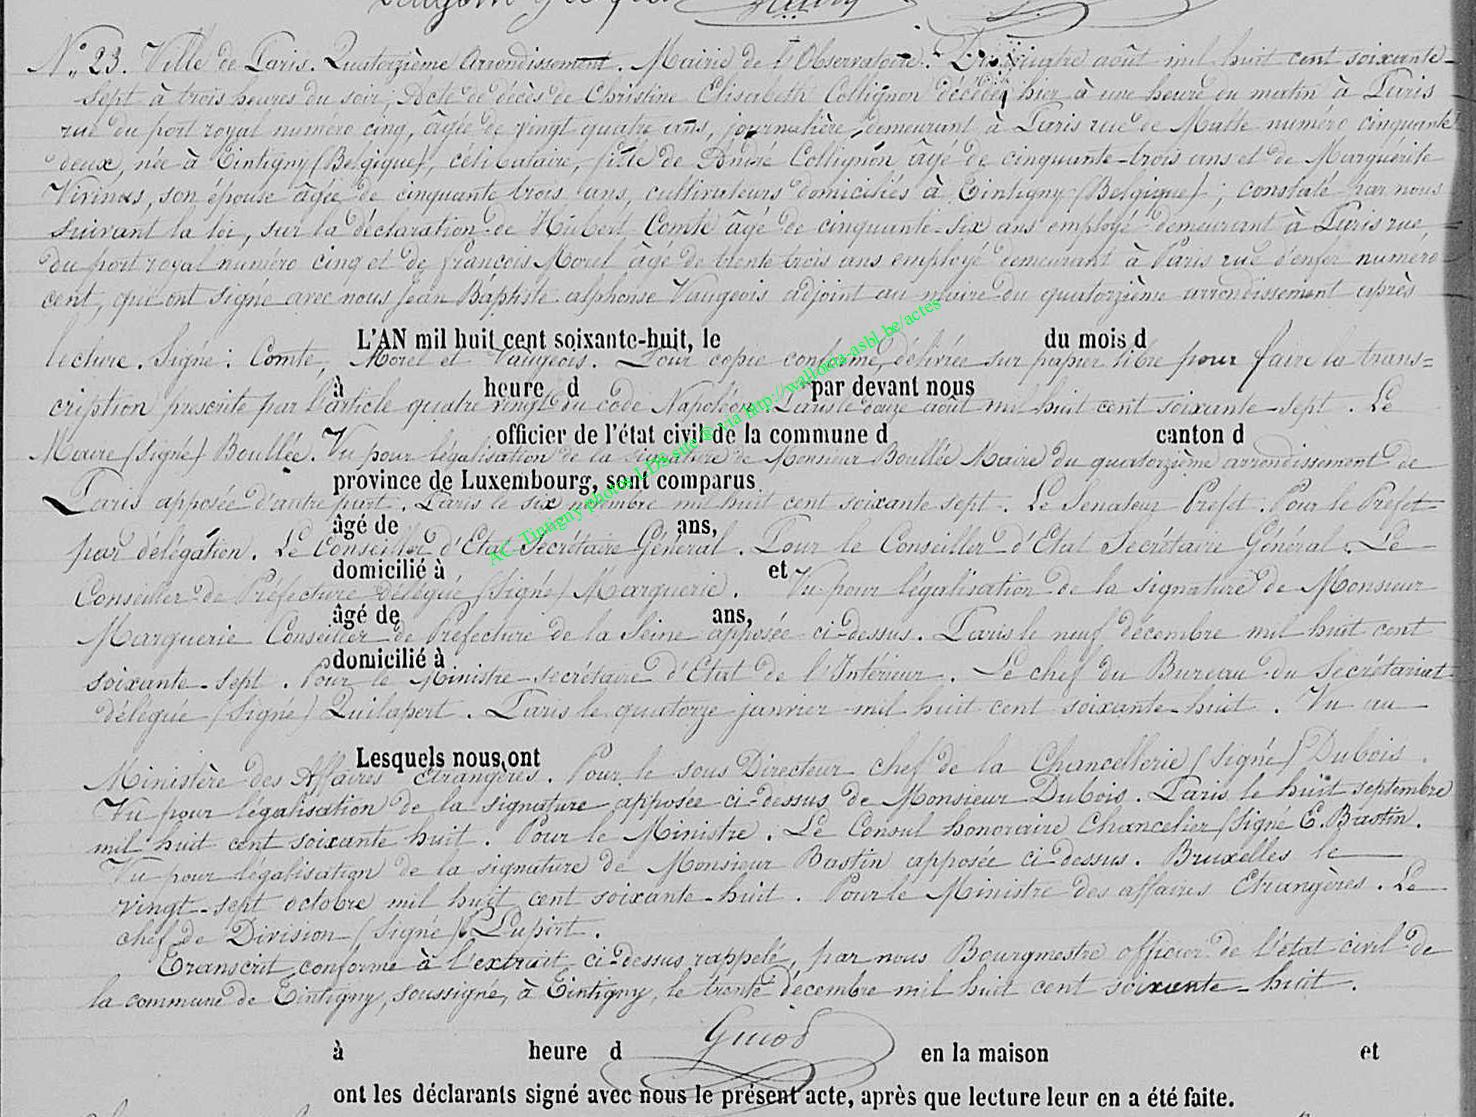 N° 23. Ville de Paris. Quatorzième Arrondissement. Mairie de l'Observatoire. Du quatre août mil huit cent soixante-
sept à trois heures du soir, Acte de décès de Christine Elisabeth Collignon décédée hier à une heure du matin à Paris
rue du port royal numéro cinq, âgée de vingt quatre ans, journalière, demeurant à Paris rue de Malte numéro cinquante
deux, née à Tintigny (Belgique), célibataire, fille de André Collignon âgé de cinquante-trois ans et de Marguérite
Virinas, son épouse âgée de cinquante trois ans, cultivateurs domiciliés à Tintigny (Belgique); constaté par nous
suivant la loi, sur la déclaration de Hubert Comte âgé de cinquante-six ans employé demeurant à Paris rue
du port royal numéro cinq et de françois Morel âgé de trente trois ans employé demeurant à Paris rue d'enfer numéro
cent, qui ont signé avec nous Jean Baptiste alphonse Vaugeois adjoint au maire du quatorzième arrondissement après
L'AN mil huit cent soixante-huit, le du mois d
lecture. Signé: Comte, Morel et Vaugeois. Pour copie conforme, délivrée sur papier libre pour faire la trans=
à heure d par devant nous
cription prescrite par l'article quatre vingt du code Napoléon. Paris le douze août mil huit cent soixante-sept. Le
officier de l'état civil de la commune d canton d
Maire (signé) Boullée. Vu pour légalisation de la signature de Monsieur Boullée Maire du quatorzième arrondissement de
province de Luxembourg, sont comparus
Paris apposée d'autre part. Paris le six mil huit cent soixante sept. Le Senateur Préfet. Pour le Préfet
âgé de ans,
par délégation. Le Conseiller d'Etat Secrétaire Général. Pour le Conseiller d'Etat Secrétaire Général. Le
domicilié à et
Conseiller de Préfecture délégué (signé) Marguerie. Vu pour légalisation de la signature de Monsieur
âgé de ans,
Marguerie Conseiller de Préfecture de la Seine apposée ci-dessus. Paris le neuf décembre mil huit cent
domicilié à
soixante-sept. Pour le Ministre secrétaire d'Etat de l'Intérieur. Le chef du Bureau du Secrétariat
délégué (signé) Quilapert. Paris le quatorze janvier mil huit cent soixante-huit. Vu au
Lesquels nous ont
Ministère des Affaires Etrangères. Pour le sous Directeur chef de la Chancellerie (signé) Dubois.
Vu pour légalisation de la signature apposée ci-dessus de Monsieur Dubois. Paris le huit septembre
mil huit cent soixante huit. Pour le Ministre. Le Consul honoraire Chancelier (signé E. Bastin.
Vu pour légalisation de la signature de Monsieur Bastin apposée ci-dessus. Bruxelles le
vingt-sept octobre mil huit cent soixante-huit. Pour le Ministre des affaires Etrangères. Le
chef de Division (signé)
Transcrit conforme à l'extrait ci-dessus rappelé, par nous Bourgmestre officier de l'état civil de
la commune de Tintigny, soussigné, à Tintigny, le trente décembre mil huit cent soixante-huit.
Guiod
à heure d en la maison et
ont les déclarants signé avec nous le présent acte, après que lecture leur en a été faite.
AC Tintigny photos LDS sue ® via http://wallonia-asbl.be/actes